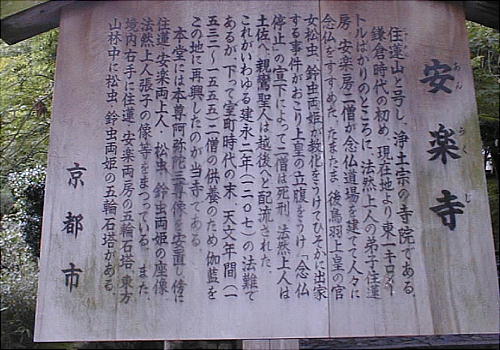 安楽寺
あんらくじ
住蓮山と号し、浄土宗の寺院である。
鎌倉時代の初め、現在地より東一キロメー
トルばかりのところに、法然上人の弟子住蓮
房・安楽房二僧が念仏道場を建てて人々に
念仏をすすめた。たまたま、後鳥羽上皇の官
女松虫、鈴虫両姫が教化をうけてひそかに出家
する事件がおこり上皇の立腹をうけ「念仏
停止」の宣下によって二僧は死刑、法然上人は
土佐へ、親鸞聖人は越後へと配流された。
これがいわゆる建永二年(一二〇七)の法難で
あるが、下って室町時代の末、天文年間(一
五三二〜一五五五)二僧の供養のため、伽藍を
この地に再興したのが当寺である。
本堂には本尊阿弥陀三尊像を安置し、傍に
住蓮・安楽両上人・松虫・鈴虫両姫の座像
法然上人張子の像等をまつっている。また、
境内右手に住蓮・安楽両房の五輪石塔、東方
山林中に松虫、鈴虫両姫の五輪石塔がある。
京都市